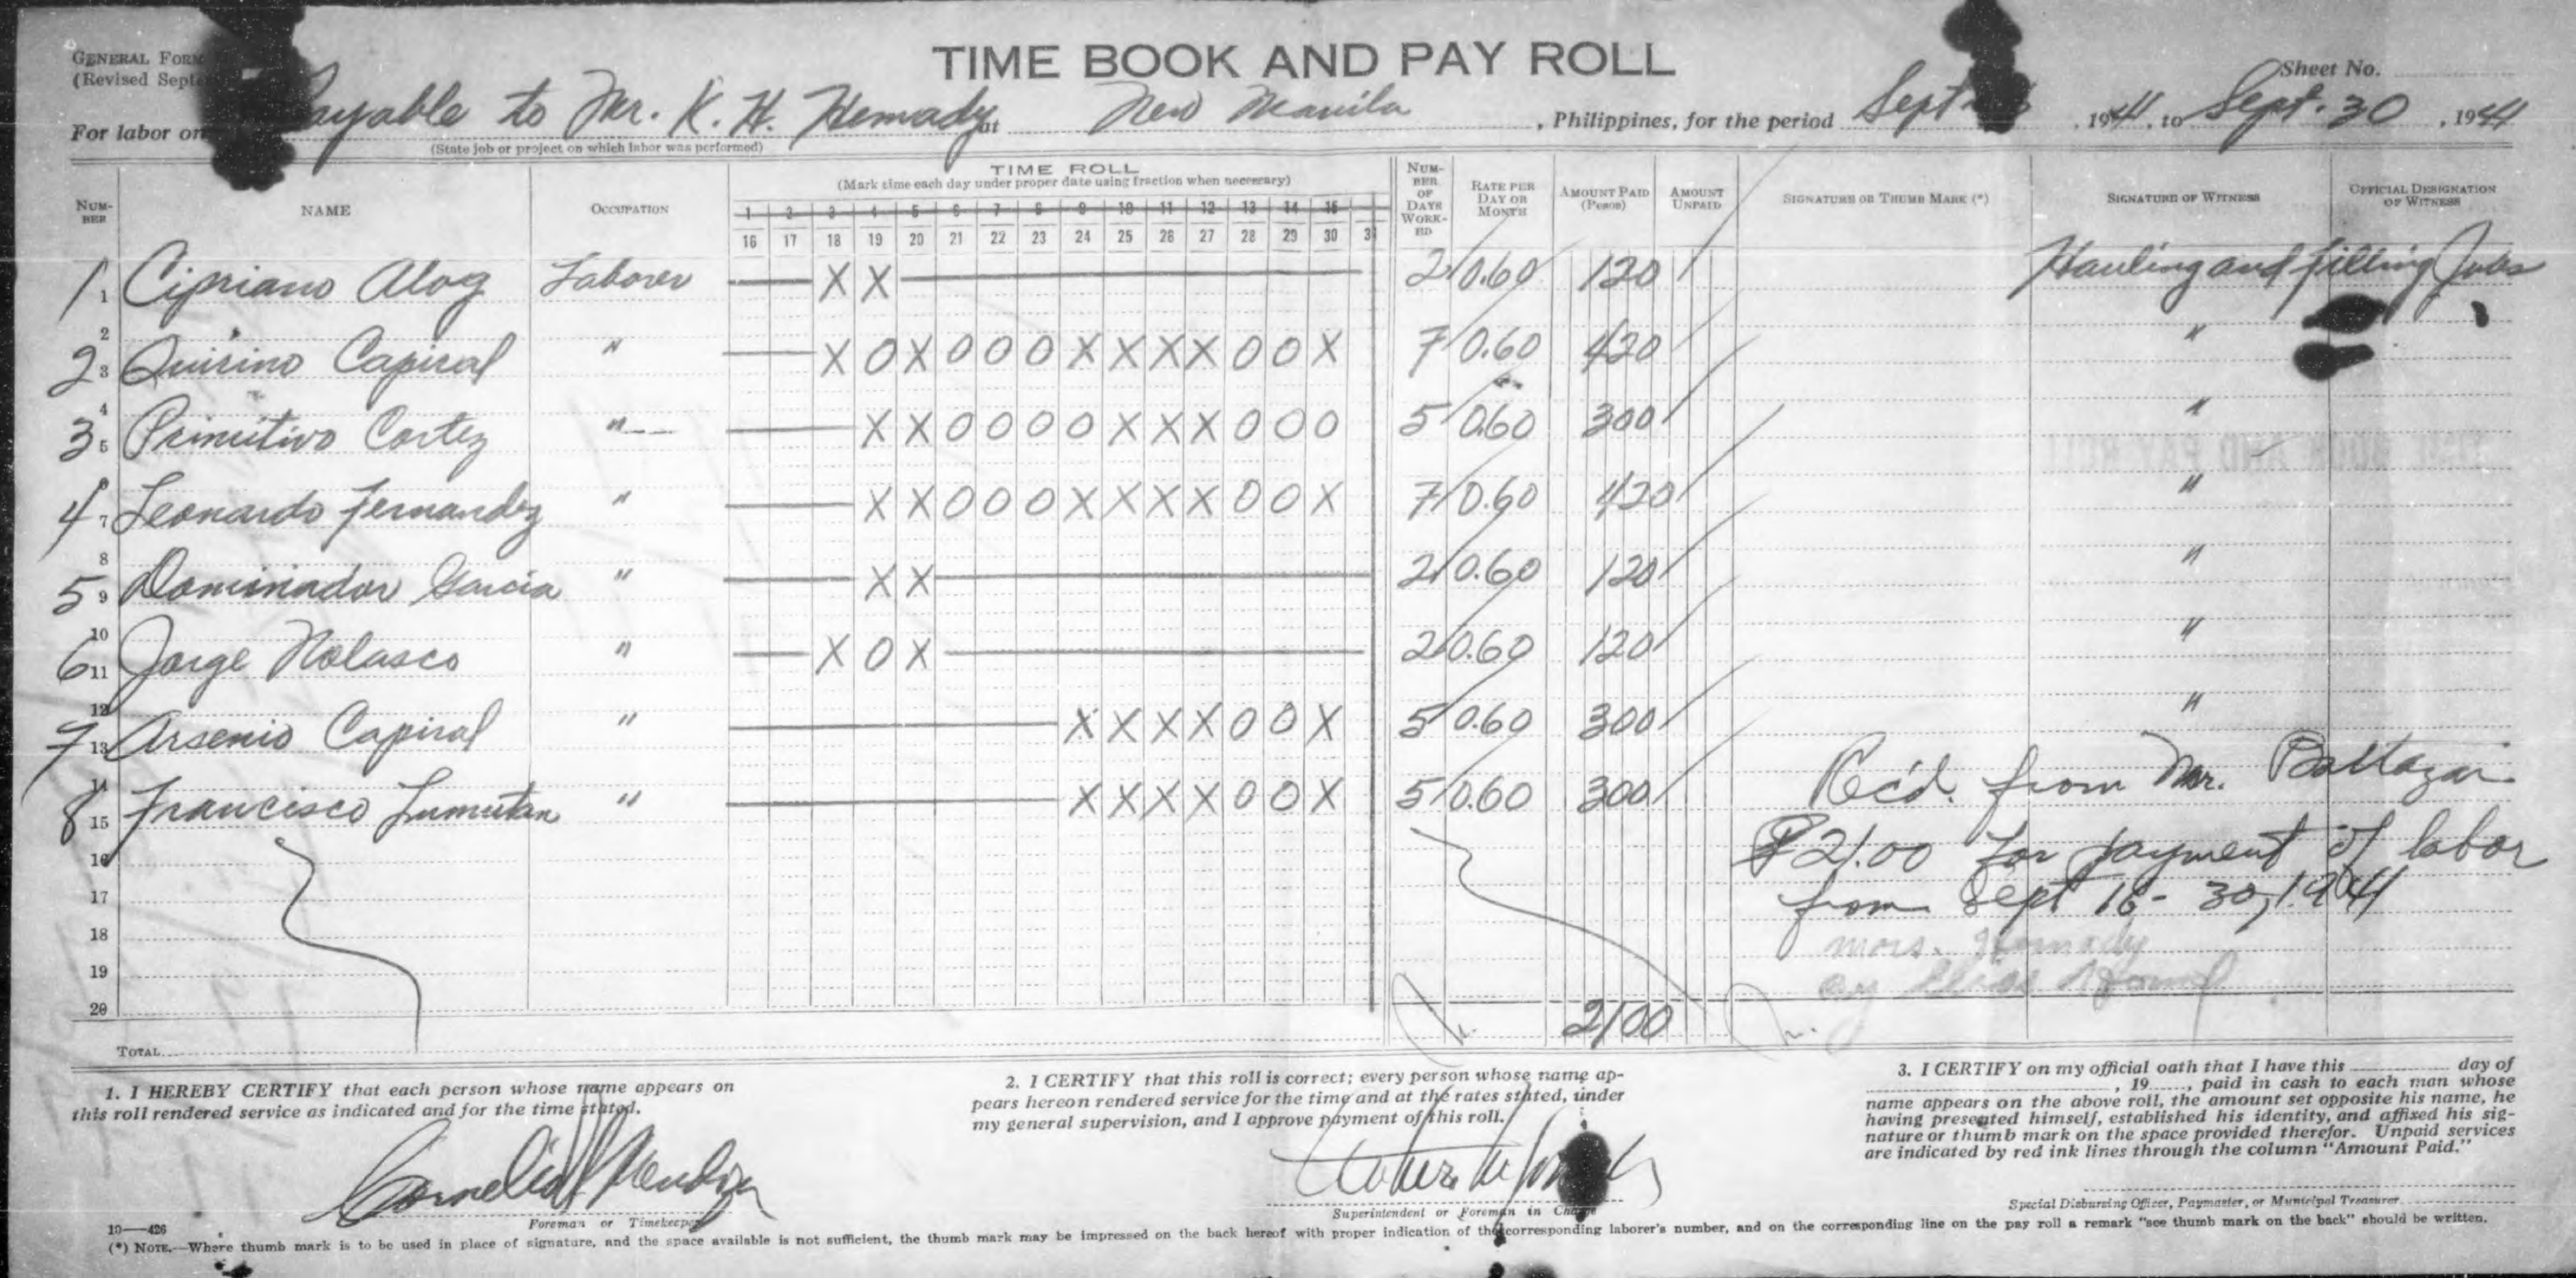 GENERAL FORM
(Revised Sept
TIME BOOK AND PAY ROLL
Sheet No.
For labor on Payable to Mr. K. H. Hemady at New Manila, Philippines, for the period Sept. 1941, to Sept. 30, 1941
(State job or project on which labor was performed)
NUM-BER NAME OCCUPATION TIME ROLL NUM-BER OF DAYS WORK-ED RATE PER DAY OR MONTH AMOUNT PAID (Pesos) AMOUNT UNPAID SIGNATURE OR THUMB MARK (*) SIGNATURE OF WITNESS OFFICIAL DESIGNATION OF WITNESS
(Mark time each day under proper date using fraction when necessary)
1 2 3 4 5 6 7 8 9 10 11 12 13 14 15
16 17 18 19 20 21 22 23 24 25 26 27 28 29 30 31
1 1 Cipriano Alog Laborer X X 2 0.60 1 20 Hauling and filling Jobs
2
2 3 Quirino Capiral " X O X O O O X X X X O O X 7 0.60 4 20 "
4
3 5 Primitivo Cortez " X X O O O O X X X O O O 5 0.60 3 00 "
6
4 7 Leonardo Fernandez " X X O O O X X X X O O X 7 0.60 4 20 "
8
5 9 Dominador Garcia " X X 2 0.60 1 20 "
10
6 11 Jorge Nolasco " X O X 2 0.60 1 20 "
12
7 13 Arsenio Capiral " X X X X O O X 5 0.60 3 00 "
14
8 15 Francisco Lumutan " X X X X O O X 5 0.60 3 00
Rec'd. from Mr. Baltazar
₱21.00 for payment of labor
from Sept 16 - 30, 1941
Mrs. Hemady
16
17
18
19
20
21 00
TOTAL
1. I HEREBY CERTIFY that each person whose name appears on
this roll rendered service as indicated and for the time stated.
Foreman or Timekeeper
2. I CERTIFY that this roll is correct; every person whose name ap-
pears hereon rendered service for the time and at the rates stated, under
my general supervision, and I approve payment of this roll.
Superintendent or Foreman in Charge
3. I CERTIFY on my official oath that I have this day of
, 19 , paid in cash to each man whose
name appears on the above roll, the amount set opposite his name, he
having presented himself, established his identity, and affixed his sig-
nature or thumb mark on the space provided therefor. Unpaid services
are indicated by red ink lines through the column "Amount Paid."
Special Disbursing Officer, Paymaster, or Municipal Treasurer
10—426
(*) NOTE.—Where thumb mark is to be used in place of signature, and the space available is not sufficient, the thumb mark may be impressed on the back hereof with proper indication of the corresponding laborer's number, and on the corresponding line on the pay roll a remark "see thumb mark on the back" should be written.